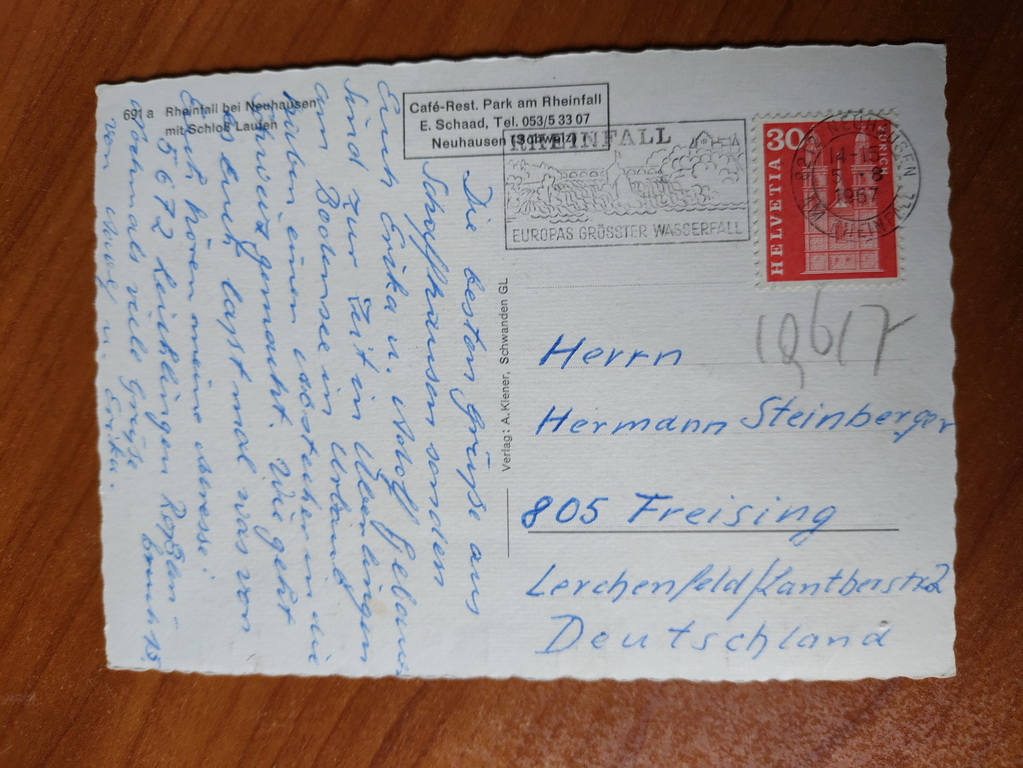 691 a Rheinfall bei Neuhausen
mit Schloß Laufen
Café-Rest. Park am Rheinfall
E. Schaad, Tel. 053/5 33 07
Neuhausen (Schweiz)
RHEINFALL
EUROPAS GRÖSSTER WASSERFALL
30
HELVETIA
ZÜRICH
8212 NEUHAUSEN AM RHEINFALL
1967
Die besten Grüße aus
Schaffhausen senden
Euch Erika u. Adolf
sind zur Zeit in Überlingen
am Bodensee in Urlaub
haben einen Abstecher in die
Schweiz gemacht. Wie geht
es euch, lasst mal was von
Euch hören meine Adresse
5672 Leichlingen
bruch 15
nochmals viele Grüße
von Adolf u. Erika.
Verlag: A. Kiener, Schwanden GL
19617
Herrn
Hermann Steinberger
805 Freising
Lerchenfeld/Lantberstr 2
Deutschland